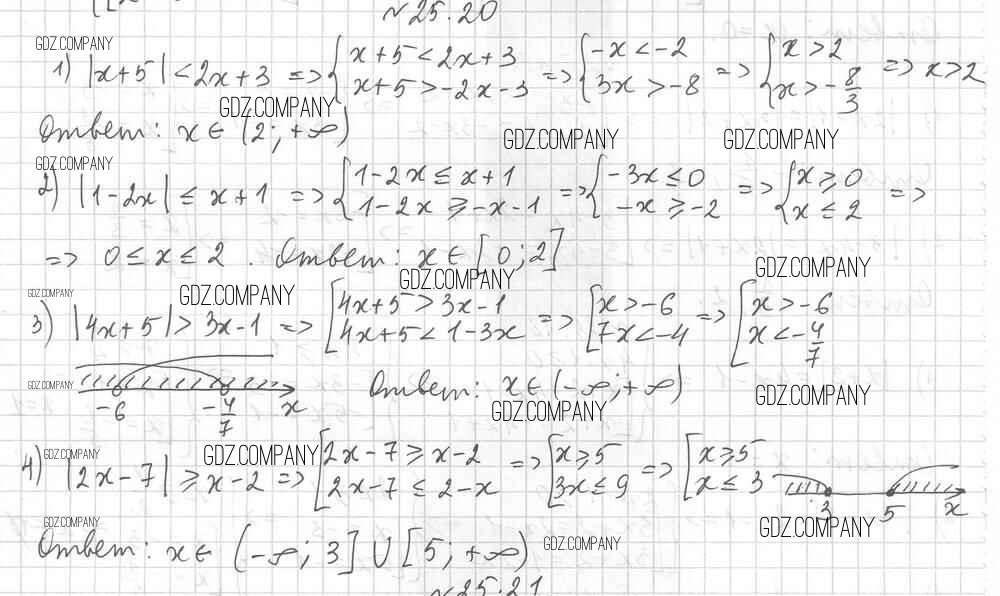 №25.20
GDZ.COMPANY
1) |x+5| < 2x+3 => { x+5 < 2x+3 x+5 > -2x-3 => { -x < -2 3x > -8 => { x > 2 x > -8/3 => x > 2
GDZ.COMPANY
Ответ: x ∈ (2; +∞)
GDZ.COMPANY GDZ.COMPANY
GDZ.COMPANY
2) |1-2x| ≤ x+1 => { 1-2x ≤ x+1 1-2x ≥ -x-1 => { -3x ≤ 0 -x ≥ -2 => { x ≥ 0 x ≤ 2 =>
=> 0 ≤ x ≤ 2 . Ответ: x ∈ [0; 2]
GDZ.COMPANY GDZ.COMPANY
GDZ.COMPANY GDZ.COMPANY
3) |4x+5| > 3x-1 => [ 4x+5 > 3x-1 4x+5 < 1-3x => [ x > -6 7x < -4 => [ x > -6 x < -4/7
GDZ.COMPANY
-6 -4/7 x
Ответ: x ∈ (-∞; +∞)
GDZ.COMPANY GDZ.COMPANY
GDZ.COMPANY GDZ.COMPANY
4) |2x-7| ≥ x-2 => [ 2x-7 ≥ x-2 2x-7 ≤ 2-x => [ x ≥ 5 3x ≤ 9 => [ x ≥ 5 x ≤ 3
3 5 x
GDZ.COMPANY GDZ.COMPANY
Ответ: x ∈ (-∞; 3] ∪ [5; +∞)
GDZ.COMPANY
№25.21